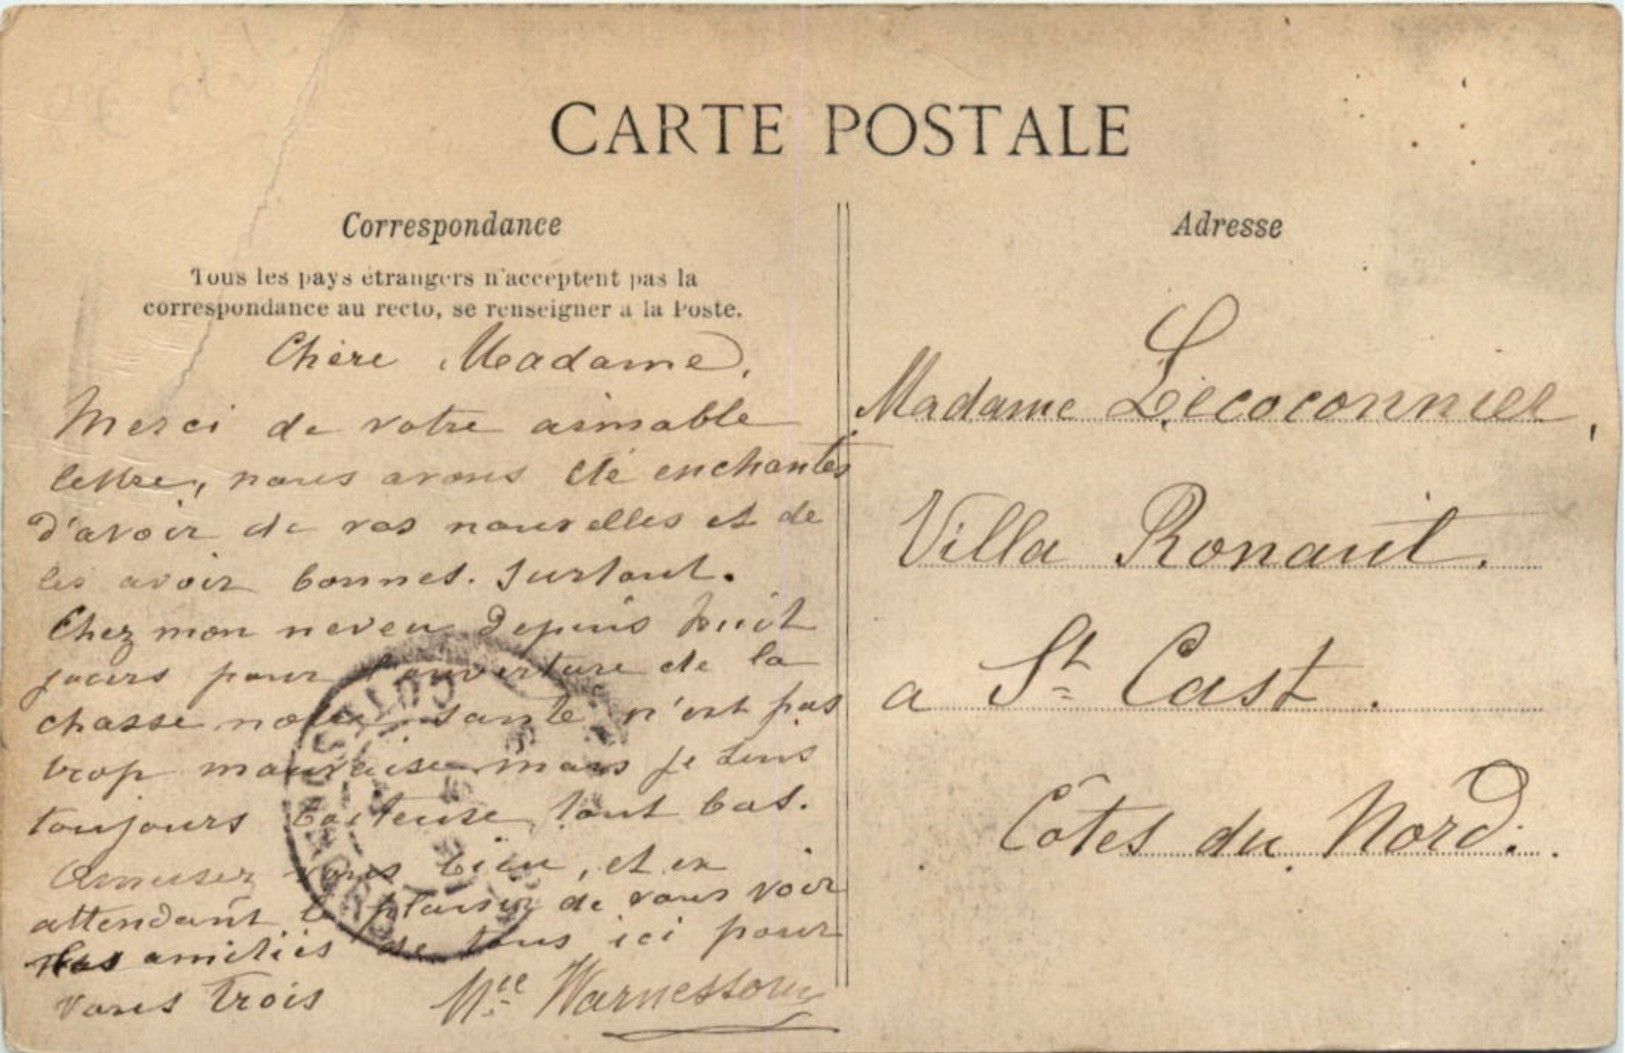 CARTE POSTALE
Correspondance
Tous les pays étrangers n'acceptent pas la
correspondance au recto, se renseigner à la Poste.
Chère Madame,
Merci de votre aimable
lettre, nous avons été enchantés
d'avoir de vos nouvelles et de
les avoir bonnes. surtout.
Chez mon neveu depuis huit
jours pour l'ouverture de la
chasse notre santé n'est pas
trop mauvaise mais je suis
toujours boiteuse tout bas.
Amusez vous bien, et en
attendant le plaisir de vous voir
Nos amitiés de tous ici pour
vous trois
Adresse
Madame Lecoconnier,
Villa Ronault.
a St Cast.
Côtes du Nord.